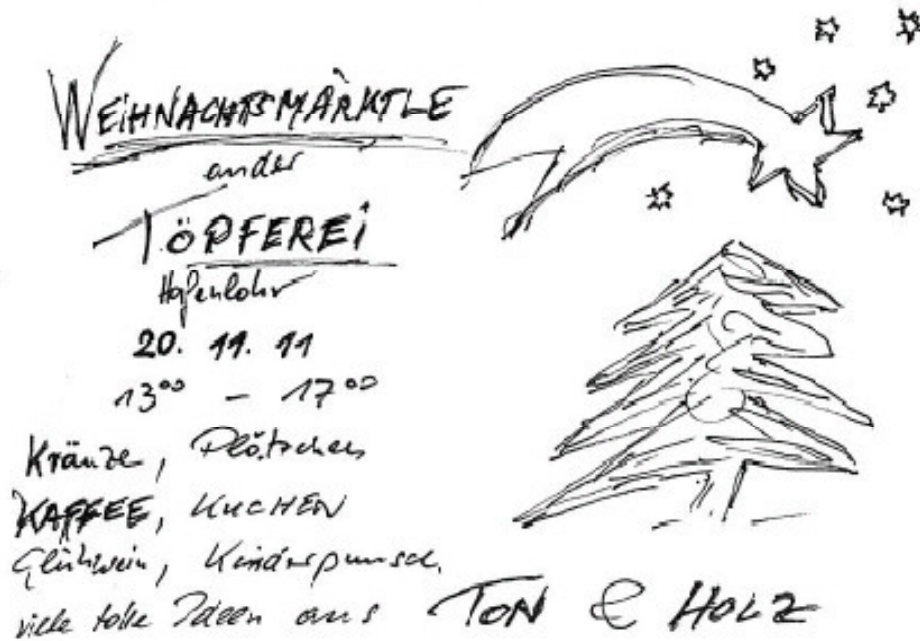 WEIHNACHTSMÄRKTLE
an der
TÖPFEREI
Hafenlohr
20. 11. 11
13⁰⁰ - 17⁰⁰
Kränze, Plätzchen
KAFFEE, KUCHEN
Glühwein, Kinderpunsch,
viele tolle Ideen aus TON & HOLZ